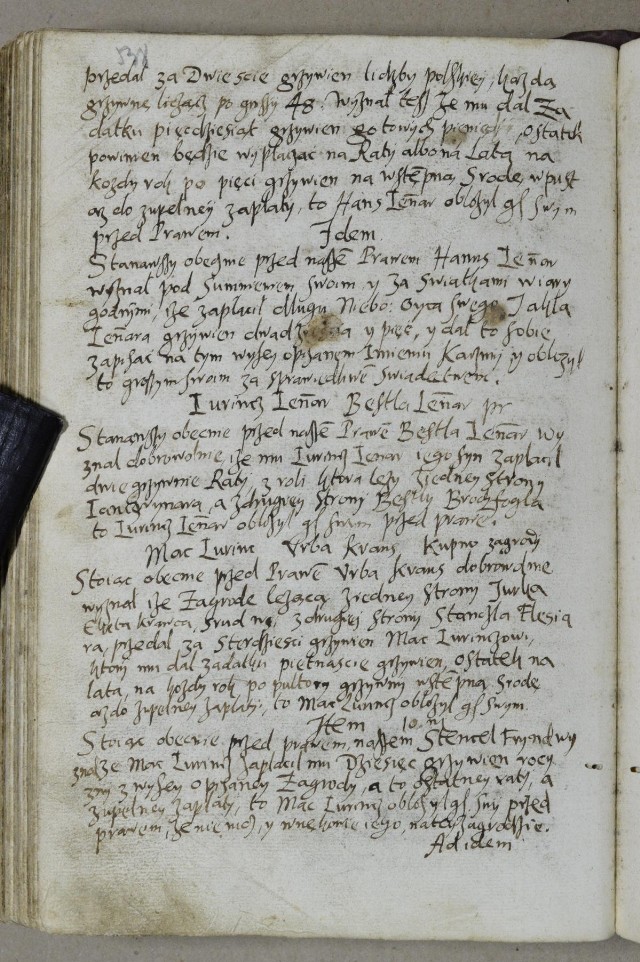 przedal za Dwiescie grzywien lidzby polskiey, kazdą
grzywnę licząc po groszy 48. Wyznal tesz ze mu dal Za
datku pięcdziesiąt grzywien gotowych pieniędzi, Ostatek
powinien będzie wyplaczac na Raty albo na Lata na
kozdy rok po pięci grzywien na wstępną Srode w pust
az do zupelney zaplaty, to Hans Lenar oblozyl gs swym
przed Prawem. Idem
Stanąwszy obecnie przed naszem Prawem Hanns Lenar
wyznal pod Summieniem swoim y za Swiatkami wiary
godnymi, ize zaplacil dlugu Niebo: Oyca swego Jakla
Lenara grzywien dwadziescia y pięc, y dal to sobie
zapisac na tym wyszey opisanem Imieniu y oblozyl
to groszym swoim za sprawiedliwe swiadectwem.
Lurincz Lenar Bestla Lenar
Stanawszy obecnie przed naszem Prawe Bestla Lenar Wy
znal dobrowolnie, ize mu Lurincz Lenar iego syn zaplacil
dwie grzywnie Raty, z roli ktora lezy z iedney strony
a z drugiey strony Bestly Brodfogla
to Lurincz Lenar oblozyl gs swim przed prawe.
Mac Lurinc Urba Kraus Kupno zagrody
Stoiąc obecnie przed Prawe Urba Kraus dobrowolnie
wyznal ize Zagrode lezącą z iedney strony Jurka
krawca, z drugiej strony Stanczla Flesia
ra, przedal za Sterdziesci grzywien Mac Lurinczowi,
ktory mu dal zadatku pietnascie grzywien, Ostatek na
lata, na kozdy rok po pultory grzywny wstępną Srode
az do zupelney zaplaty, to Mac Lurincz oblozyl gs swym.
Item 10
Stoiąc obecnie przed prawem naszem Stencel wy
znal ze Mac Lurincz zaplacil mu Dziesięc grzywien
z wyszey opisaney Zagrody, a to ostatney raty, a
zupelney zaplaty, to Mac Lurincz oblozyl gs swy przed
prawem, ze nie moj, y wnękowie iego, na tey zagrodzie.
Ad idem